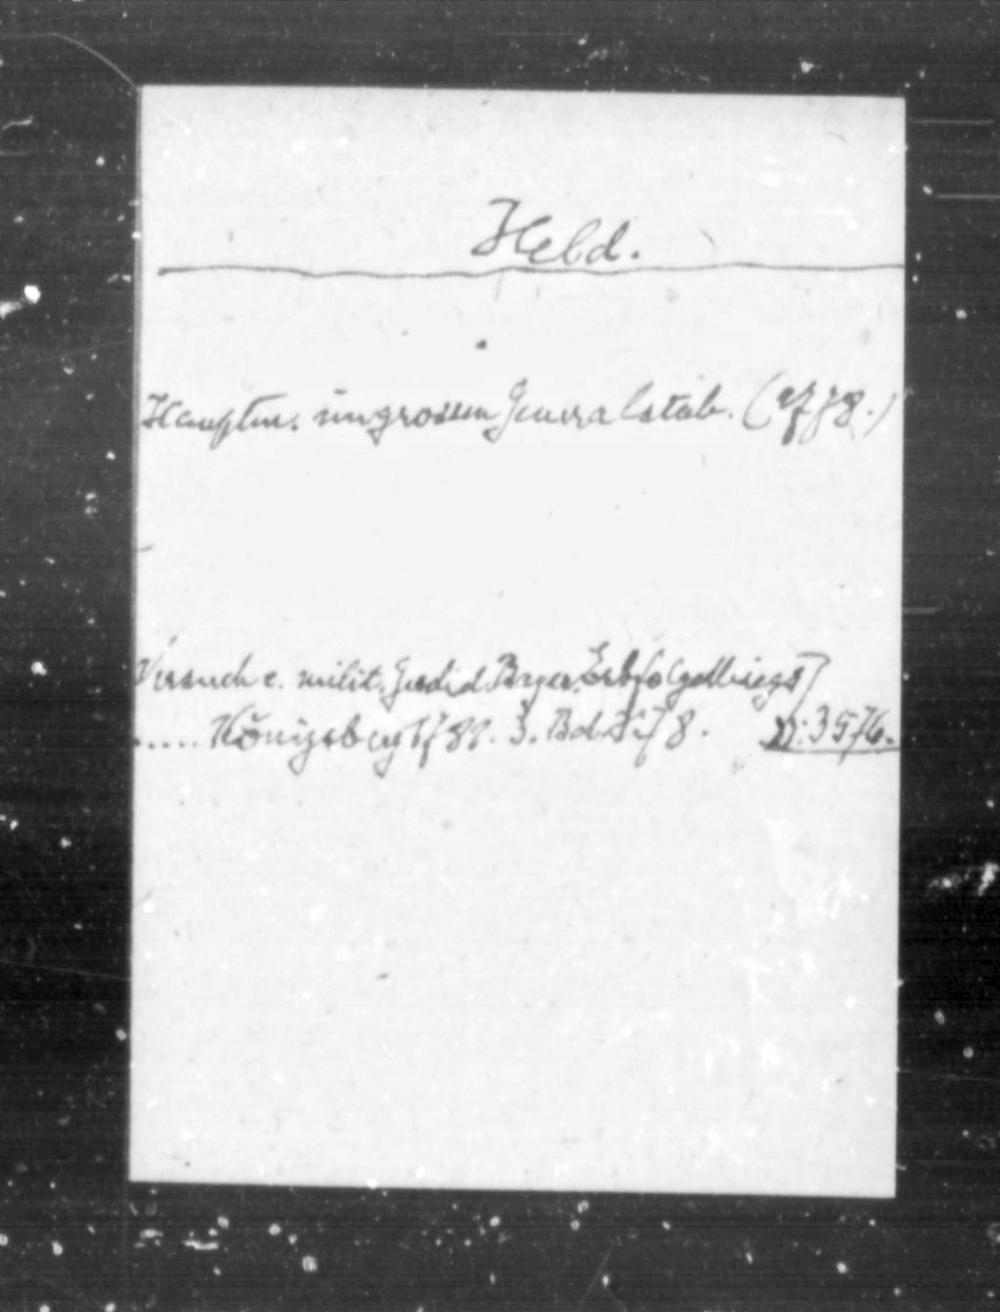 Held.
Hauptm. im grossen Generalstab. (1778.)
Versuch e. milit. Gesch. d. Bayer. Erbfolgekriegs
..... Königsberg 178 . 3. Bd. S. 78. D: 3576.